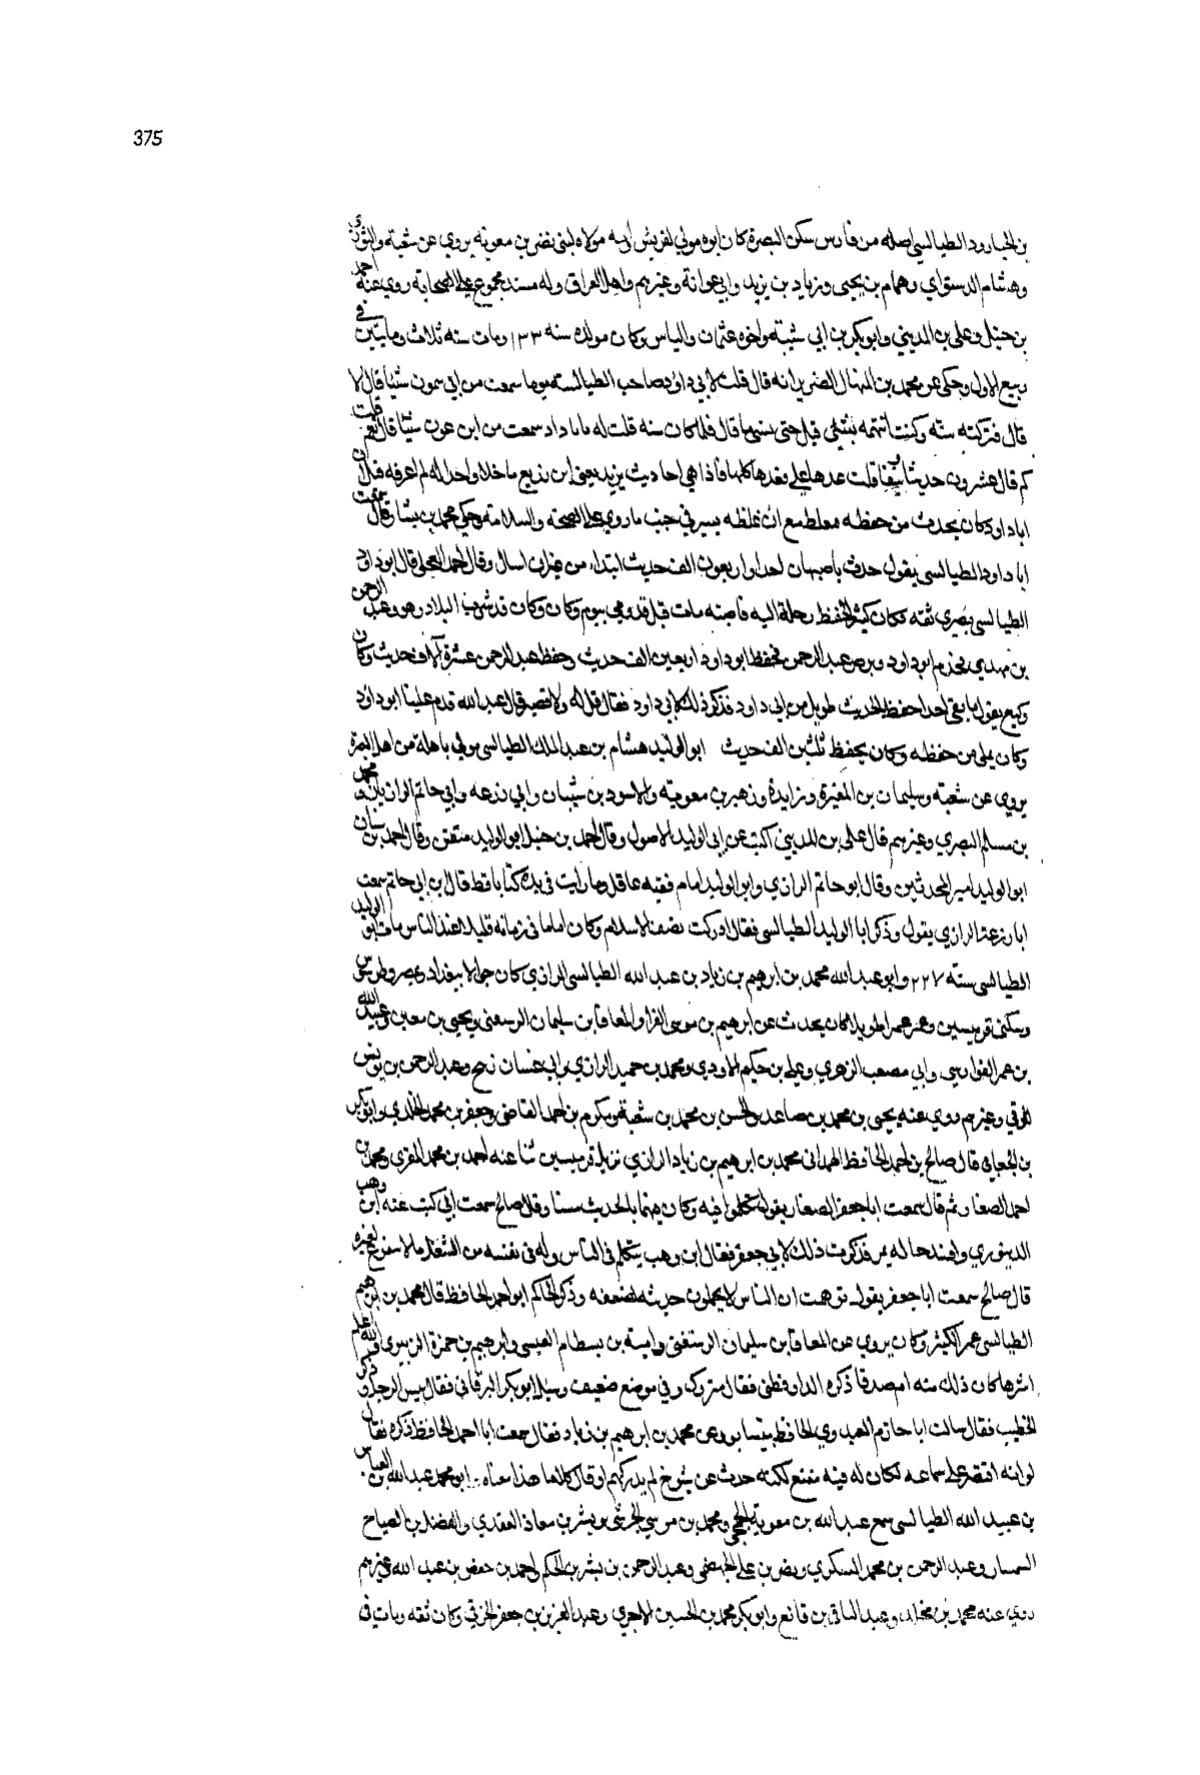 375
بن الجارود الطيالسي اصله من فارس سكن البصرة كان ابوه مولي لقريش وامه مولاه لبني نضر بن معوية يروي عن شعبة والثوري
وهشام الدستواي وهمام بن يحيى وزياد بن يزيد وابي عوانة وغيرهم واهل العراق وله مسند مجموع علي الصحابة روي عنه احمد
بن حنبل وعلي بن المديني وابوبكر بن ابي شيبة واخوه عثمان والياس وكان مولده سنه ١٣٣ ومات سنه ثلاث ومايتين في
ربيع الاول وحكي عن محمد بن المنهال الضرير انه قال قلت لابي داود صاحب الطيالسة يوما سمعت من ابن عون شيئا قال لا
قال فتركته سنة وكنت اتهمه بشئي قبل حتى ينسى ما قال فلما كان سنه قلت له يا با داود سمعت من ابن عون شيئا قال نعم قلت
كم قال عشرون حديثا ونيفا قلت عدها علي فعدها كلها فاذا هي احاديث يزيد يعني ابن زريع ما خلا واحدا له لم اعرفه قال ان
ابا داود كان يحدث من حفظه مع ان غلظه يسير في جنب ما روي علي الصحة والسلامة وحكي محمد بن بشار قال سمعت
ابا داود الطيالسي يقول حدثت باصبهان احدا واربعون الف حديث ابتداء من غير ان اسال وقال احمد العجلي قال ابو داود
الطيالسي بصري ثقه وكان كثير الحفظ رحلت اليه فاصبته مات قبل قدومي بيوم وكان وكان قد شرب البلاذر هو وعبد الرحمن
بن مهدي فجذم ابو داود وبرص عبد الرحمن فحفظ ابو داود اربعين الف حديث وحفظ عبد الرحمن عشرة آلاف حديث وكان
وكيع يقول ما بقي احد احفظ لحديث طويل من ابي داود فذكر ذلك لابي داود فقال قل له ولا قصير قال عبد الله قدم علينا ابو داود
وكان يملي من حفظه وكان يحفظ ثلثين الف حديث ابو الوليد هشام بن عبد الملك الطيالسي مولي باهلة من اهل البصرة
يروي عن شعبة وسليمان بن المغيرة وزايدة وزهير بن معوية والاسود بن شيبان وابي زرعه وابي حاتم الرازيان ومحمد
بن مسلم البصري وغيرهم قال علي بن المديني اكتب عن ابي الوليد الاصول وقال احمد بن حنبل ابو الوليد متقن وقال احمد بن سنان
ابو الوليد امير المحدثين وقال ابو حاتم الرازي وابو الوليد امام فقيه عاقل وما رايت في يده كتابا قط قال ابن ابي حاتم سمعت
ابا زرعة الرازي يقول وذكر ابا الوليد الطيالسي فقال ادركت نصف الاسلام وكان اماما في زمانه عند الناس مات ابو الوليد
الطيالسي سنة ٢٢٧ وابو عبد الله محمد بن ابرهيم بن زياد بن عبد الله الطيالسي الرازي كان جوالا ببغداد ومصر وطرسوس
وسكن قرميسين وعمر عمرا طويلا كان يحدث عن ابرهيم بن موسى الفرا والمعافا بن سليمان الرسعني ويحيى بن معين وعبيد الله
بن عمر القواريري وابي مصعب الزهري وعلي بن حكيم الاودي ومحمد بن حميد الرازي وابي غسان زنيج وعبد الرحمن بن يونس
الرقي وغيرهم روي عنه يحيى بن محمد بن صاعد والحسن بن محمد بن شعبة ومكرم بن احمد القاضي وجعفر بن محمد الخلدي وابو بكر
بن الجعابي قال صالح بن احمد الحافظ الهمداني محمد بن ابرهيم بن زياد الرازي نزيل قرميسين ثنا عنه احمد بن محمد المقري ومحمد بن
احمد الصفار ثم قال سمعت ابا جعفر الصفار يقول تكلموا فيه وكان فهما بالحديث مسنا وقال صالح سمعت ابي كتب عنه ابن وهب
الدينوري وافتد حاله ثم فذكرت ذلك لابي جعفر فقال ابن وهب يتكلم في الناس وله في نفسه من الشغل ما لا يتفرغ لغيره
قال صالح سمعت ابا جعفر يقول توهمت ان الناس لا يحملون حديثه لضعفه وذكر الحاكم ابو احمد الحافظ قال محمد بن ابرهيم
الطيالسي عمر الكثير وكان يروي عن المعافا بن سليمان الرسعني وامية بن بسطام العيسي وابرهيم بن حمزة الزبيري الله اعلم
اشرها كان ذلك منه ام صدقا ذكره الدارقطني فقال متروك وفي موضع ضعيف وسئل ابو بكر البرقاني فقال بيس الرجل وذكر
الخطيب فقال سالت ابا حازم العبدوي الحافظ بنيسابور عن محمد بن ابرهيم بن زياد فقال سمعت ابا احمد الحافظ ذكره فقال
لو انه اقتصر علي سماعه لكان له فيه مقنع لكنه حدث عن شيوخ لم يدركهم او قال كلاما هذا معناه ابو محمد عبد الله بن العباس
بن عبيد الله الطيالسي سمع عبد الله بن معوية الجمحي ومحمد بن موسي الحرشي وبشر بن معاذ العقدي والفضل بن الصباح
السمسار وعبد الرحمن بن محمد السكري ونصر بن علي الجهضمي وعبد الرحمن بن بشر بن الحكم واحمد بن حفص بن عبد الله وغيرهم
روي عنه محمد بن مخلد وعبد الباقي بن قانع وابو بكر محمد بن الحسين الاجري وعبد العزيز بن جعفر الخرقي وكان ثقه ومات في